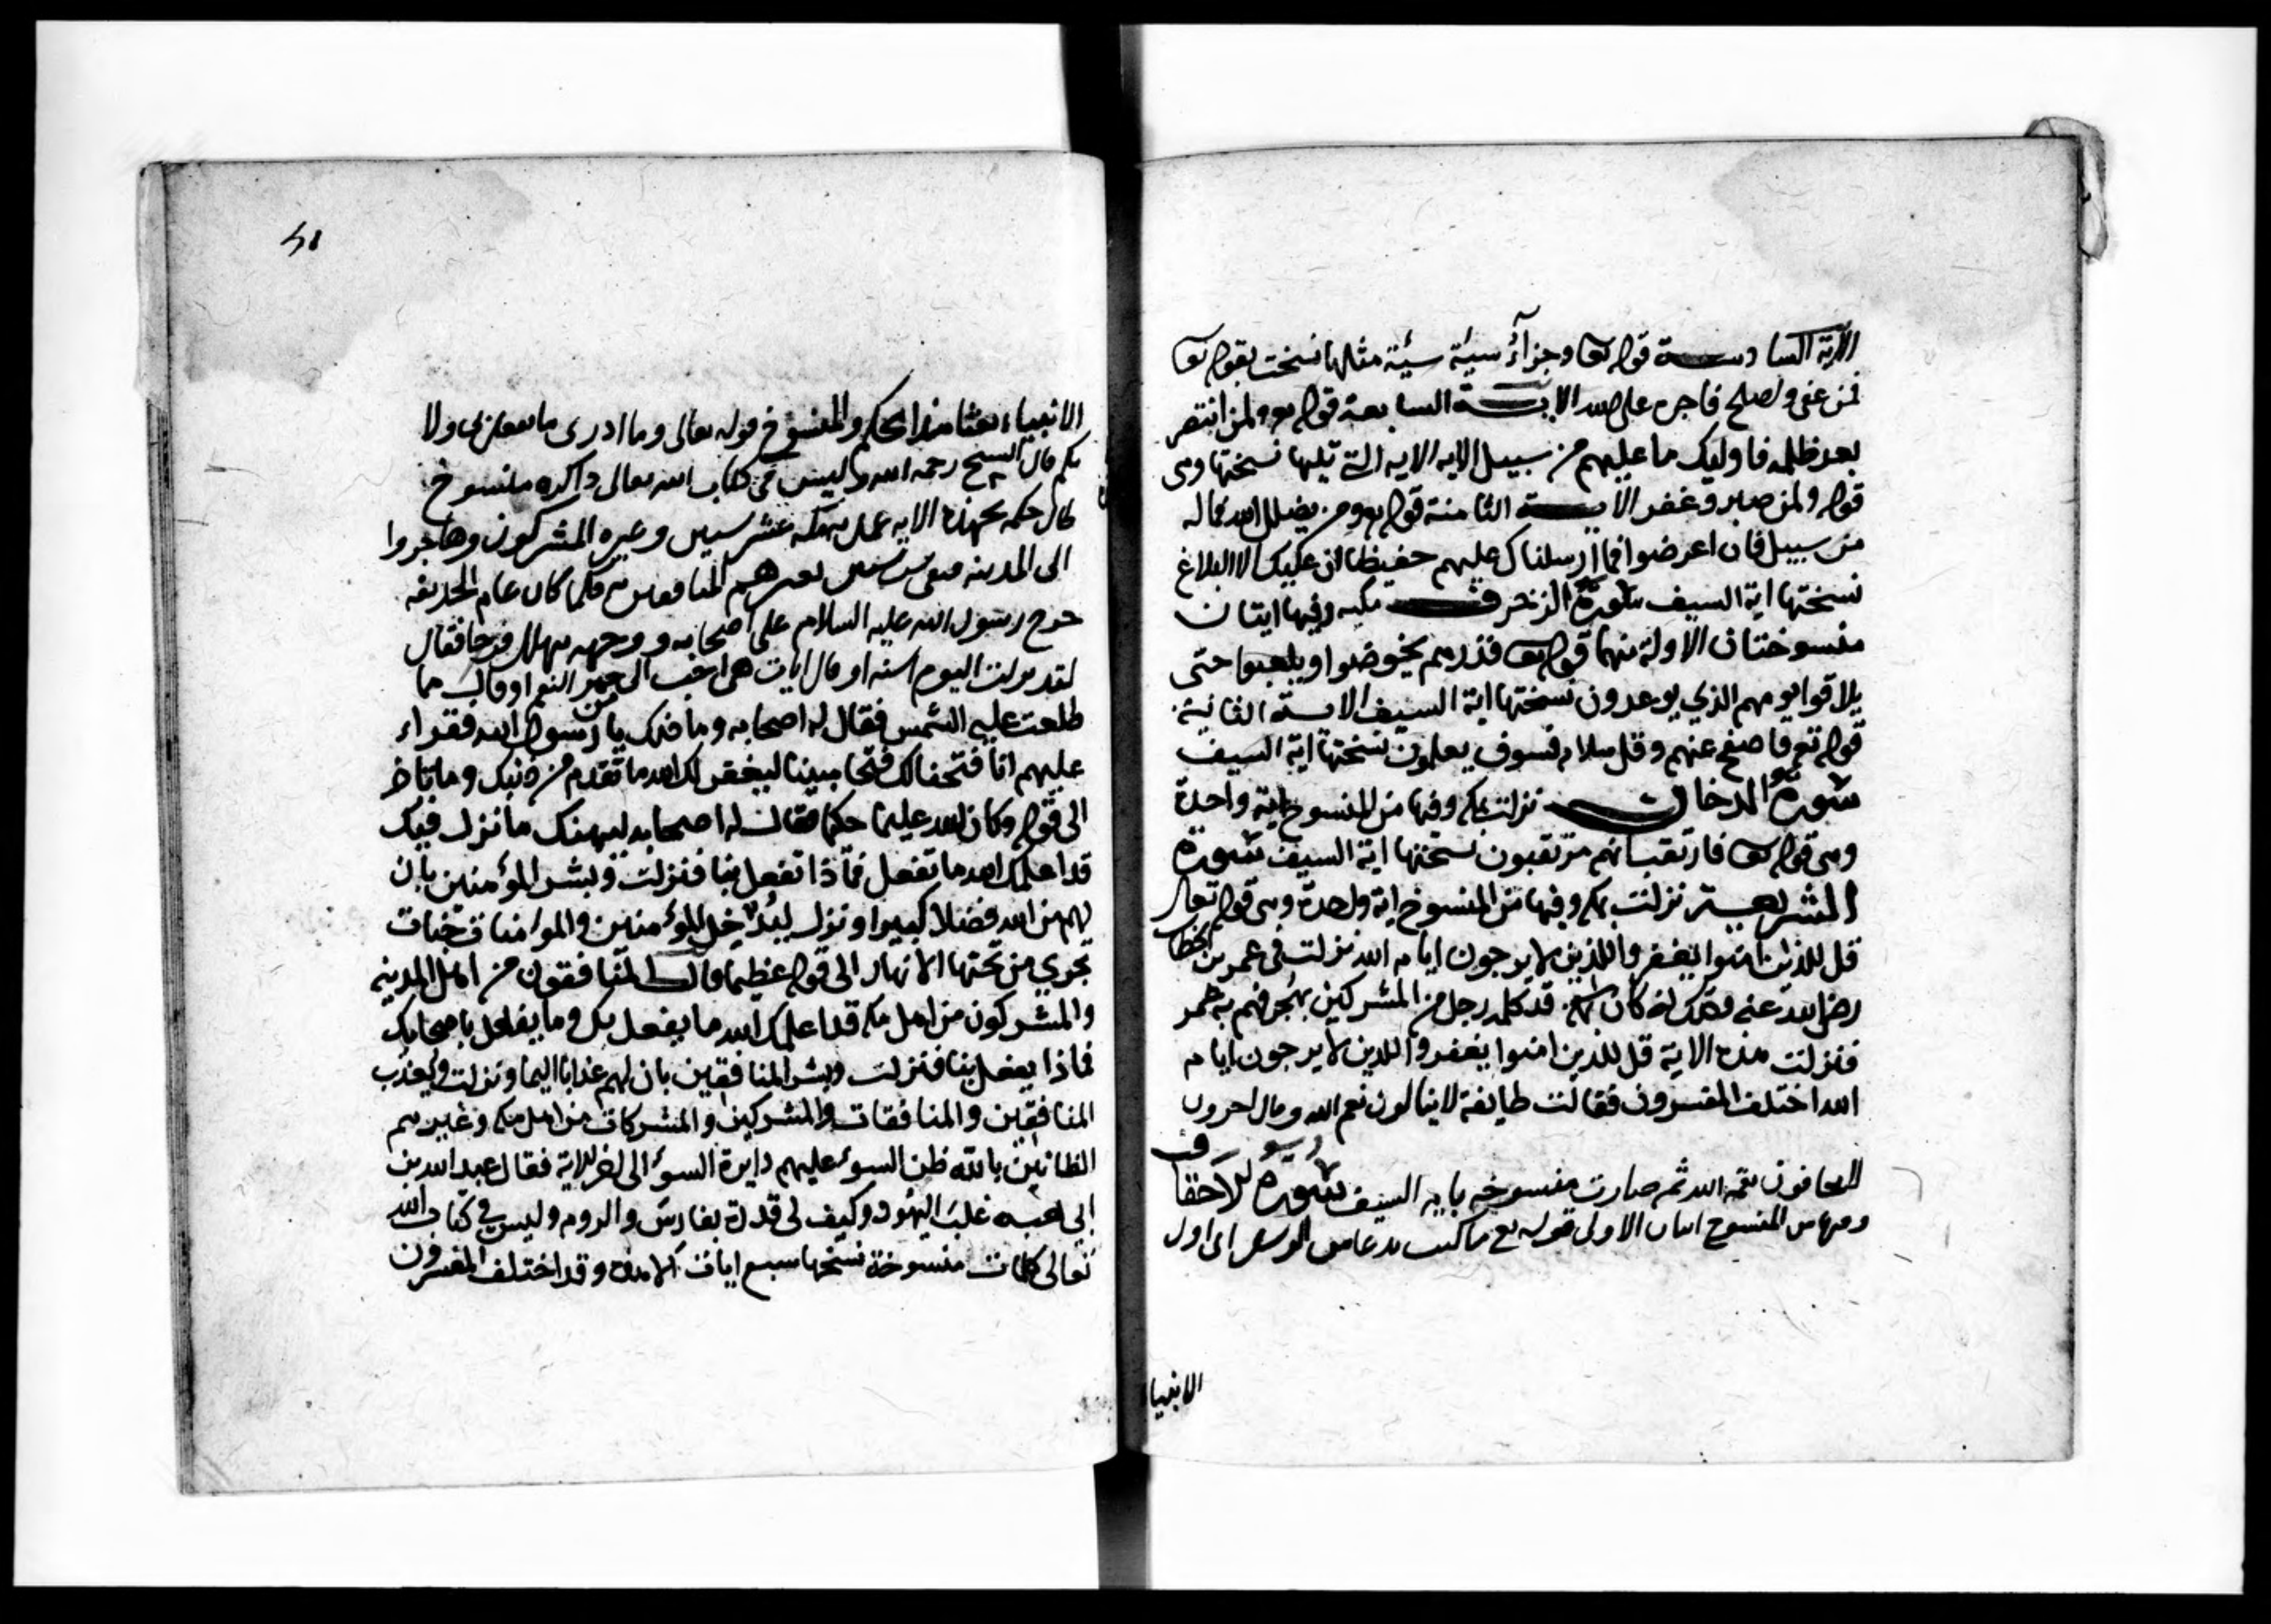 الآية السادسة قوله تعا وجزآؤ سيئة سيئة مثلها نسخت بقوله تعا
فمن عفى واصلح فاجره على الله الايــة السابعة قوله تع ولمن انتصر
بعد ظلمه فاوليك ما عليهم من سبيل الايه الايه التي تليها نسختها وهى
قوله ولمن صبر وغفر الايــة الثامنة قوله تع ومن يضلل الله فما له
من سبيل فان اعرضوا فما ارسلناك عليهم حفيظا ان عليك الا البلاغ
نسختها اية السيف سورة الزخرف مكيه وفيها ايتان
منسوختان الاولة منهما قوله تعا فذرهم يخوضوا ويلعبوا حتى
يلاقوا يومهم الذي يوعدون نسختها اية السيف الايــة الثانية
قوله تع فاصفح عنهم وقل سلام فسوف يعلمون نسختها اية السيف
سورة الدخان نزلت بمكه وفيها من المنسوخ اية واحدة
وهى قوله تعا فارتقب انهم مرتقبون نسختها اية السيف سورة
الشريعــة نزلت بمكه وفيها من المنسوخ اية واحدة وهى قوله تعالى
قل للذين امنوا يغفروا للذين لا يرجون ايام الله نزلت فى عمر بن الخطاب
رضى الله عنه وذلك انه كان قد كلمه رجل من المشركين فهم به عمر
فنزلت هذه الاية قل للذين امنوا يغفروا للذين لا يرجون ايام
الله اختلف المفسرون فقالت طايفة لا ينالون نعم الله وقال اخرون
لا يخافون نقمة الله ثم صارت منسوخه بايه السيف سورة الاحقاف
وفيها من المنسوخ ايتان الاولى قوله تع ما كنت بدعا من الرسل اى اول
الانبيا
الانبياء بعثا هذا المحكم والمنسوخ قوله تعالى وما ادرى ما يفعل بى ولا
بكم قال الشيخ رحمه الله وليس فى كتاب الله تعالى ذاكره منسوخ
طال حكمه كهذه الايه عمل بمكه عشر سنين وعيره المشركون وهاجروا
الى المدينه فبقى ست سنين يعيرهم المنافقين فلما كان عام الحديبيه
خرج رسول الله عليه السلام على اصحابه ووجهه يتهلل فرحا فقال
لقد نزلت اليوم اية او قال ايات هى احب الى من حمر النعم او قال مما
طلعت عليه الشمس فقال له اصحابه وما ذلك يا رسول الله فقراء
عليهم انا فتحنا لك فتحا مبينا ليغفر لك الله ما تقدم من ذنبك وما تاخر
الى قوله وكان الله عليما حكيما فقالت له اصحابه ليهنك ما نزل فيك
قد اعلمك الله ما تفعل فماذا تفعل بنا فنزلت وبشر المؤمنين بان
لهم من الله فضلا كبيرا ونزل ليدخل المؤمنين والمؤمنات جنات
تجري من تحتها الانهار الى قوله عظيما وقال المنافقون من اهل المدينه
والمشركون من اهل مكه قد اعلمك الله ما يفعل بك وما يفعل باصحابك
فماذا يفعل بنا فنزلت وبشر المنافقين بان لهم عذابا اليما ونزلت ويعذب
المنافقين والمنافقات والمشركين والمشركات من اهل مكه وغيرهم
الظانين بالله ظن السوء عليهم دايرة السوء الى اخر الاية فقال عبد الله بن
ابي غلب اليهود وكيف لى قدرة بفارس والروم وليس فى كتاب الله
تعالى كلمات منسوخة نسختها سبع ايات الا هذه وقد اختلف المفسرون